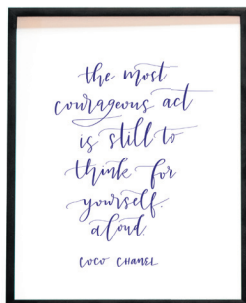 the most
courageous act
is still to
think for
yourself.
aloud.
COCO CHANEL